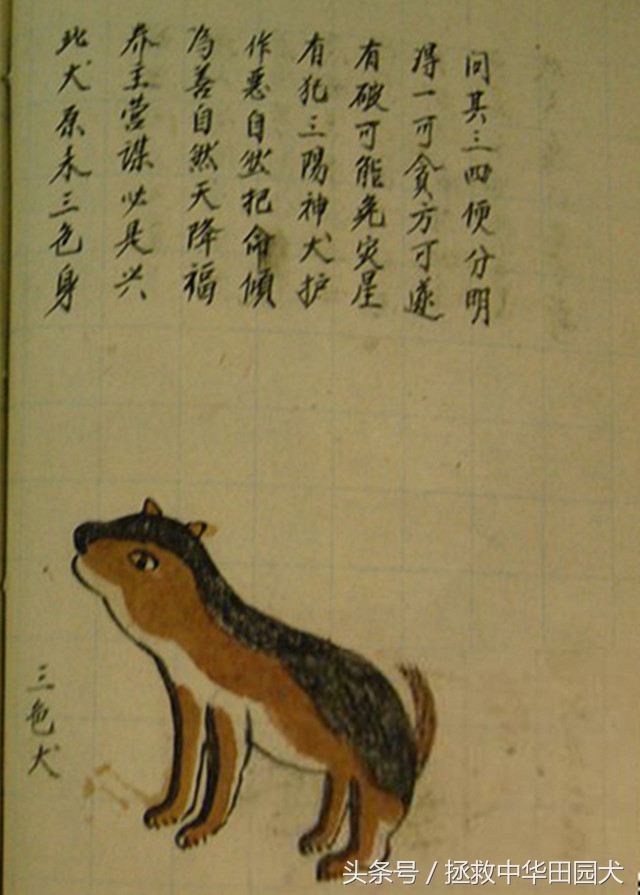 此犬原来三色身
养主营谋必是兴
為善自然天降福
作恶自然把命傾
有犯三陽神犬护
有破可能免灾星
得一可贪方可遂
问其三四便分明
三色犬
头条号 / 拯救中华田园犬